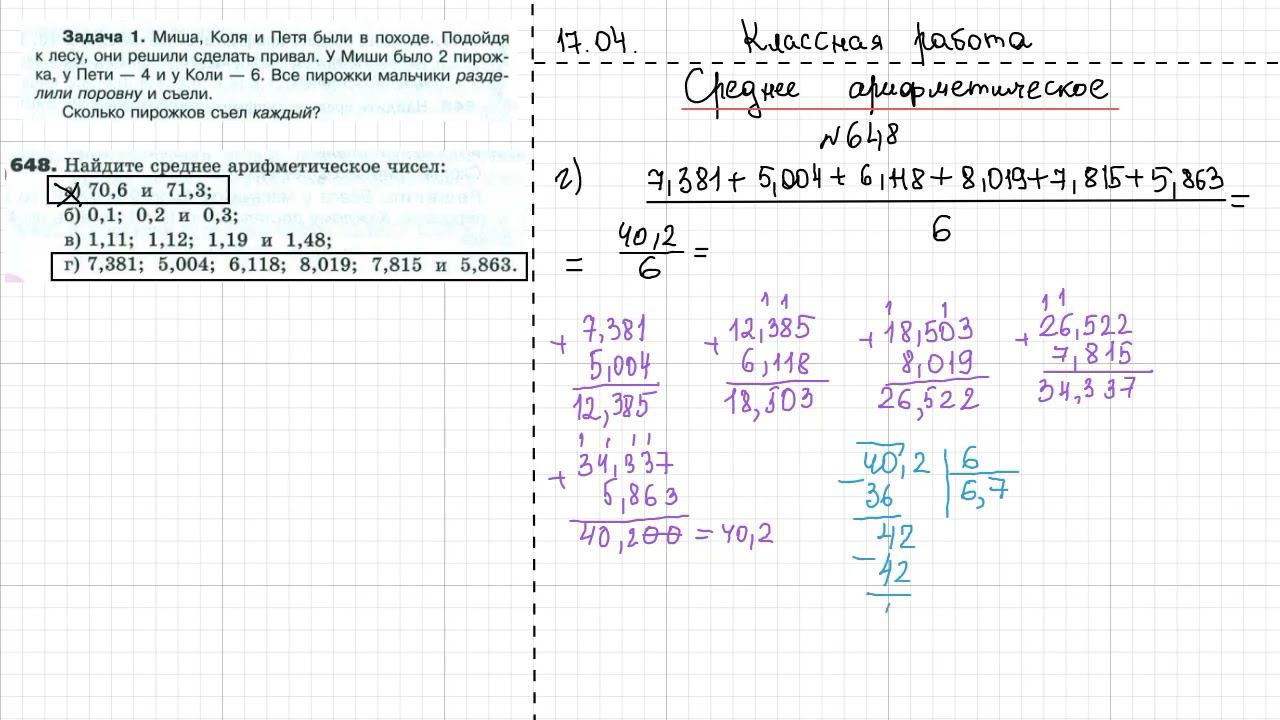 Задача 1. Миша, Коля и Петя были в походе. Подойдя
к лесу, они решили сделать привал. У Миши было 2 пирож-
ка, у Пети — 4 и у Коли — 6. Все пирожки мальчики разде-
лили поровну и съели.
Сколько пирожков съел каждый?
648. Найдите среднее арифметическое чисел:
а) 70,6 и 71,3;
б) 0,1; 0,2 и 0,3;
в) 1,11; 1,12; 1,19 и 1,48;
г) 7,381; 5,004; 6,118; 8,019; 7,815 и 5,863.
17.04. Классная работа
Среднее арифметическое
№648
г) 7,381 + 5,004 + 6,118 + 8,019 + 7,815 + 5,863 =
6
= 40,2 =
6
1 1
+ 7,381
5,004
12,385
+ 12,385
6,118
18,503
1 1
+ 18,503
8,019
26,522
1 1
+ 26,522
7,815
34,337
1 1 1 1
+ 34,337
5,863
40,200 = 40,2
40,2 | 6
- 36 6,7
42
- 42